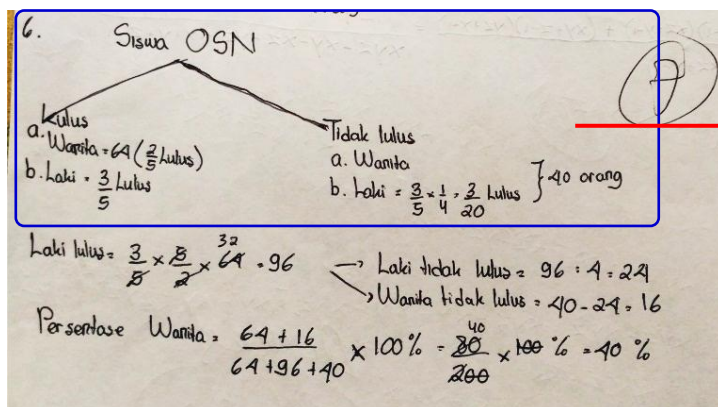 6.
Siswa OSN
Lulus
a. Wanita = 64 (2/5 Lulus)
b. Laki = 3/5 Lulus
Tidak lulus
a. Wanita
b. Laki = 3/5 × 1/4 = 3/20 Lulus
} 40 orang
Laki lulus = 3/5 × 5/2 × 64 32 = 96
→ Laki tidak lulus = 96 : 4 = 24
→ Wanita tidak lulus = 40 - 24 = 16
Persentase Wanita = (64 + 16)/(64 + 96 + 40) × 100% = 80/200 40 × 100 % = 40 %